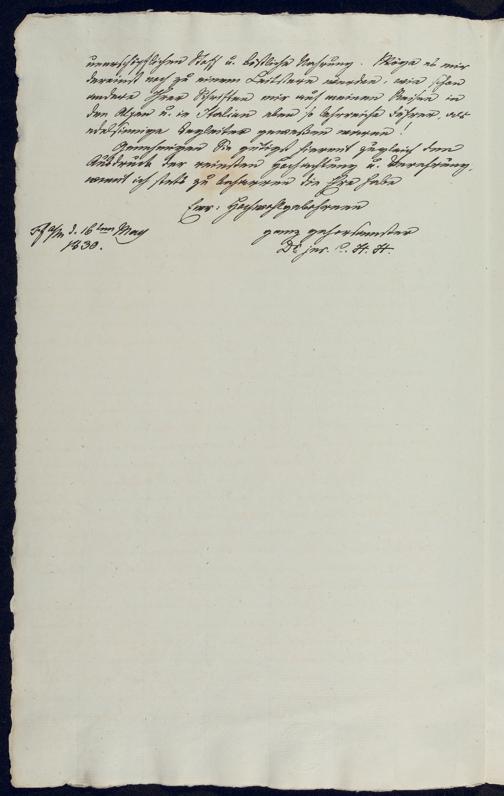 unerschöpflichen Stoff u. köstliche Nahrung. Möge er mir
dereinst noch zu einem Leitstern werden, wie schon
andere Ihrer Schriften mir auf meinen Reisen in
den Alpen u. in Italien eben so lehrreiche Führer, als
edelsinnige Begleiter gewesen waren!
Genehmigen Sie gütigst hiermit zugleich den
Ausdruck der reinsten Hochachtung u. Verehrung,
womit ich stets zu beharren die Ehre habe
Euer: Hochwohlgebohrenen
Ff a/m d. 16ten May
1830.
ganz gehorsamster
Dr jur. C. H. H.